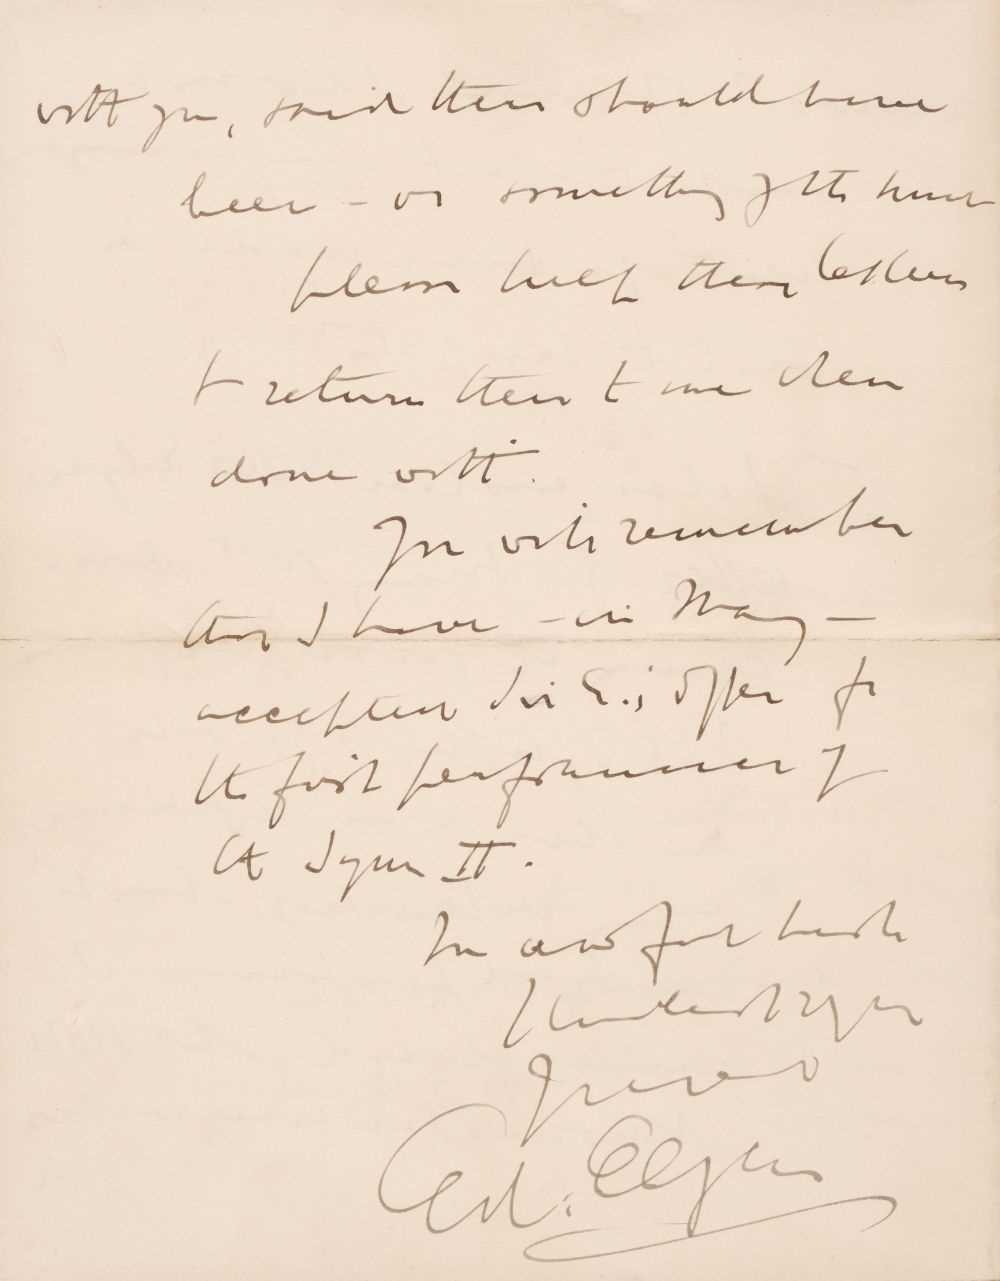 with you, said there should have
been – or something of the kind
please keep these letters
& return them to me when
done with.
You will remember
that I have – in May –
accepted Sir E.'s offer for
the first performance of
the Sym II.
In
kindest regards
Yours
Ed. Elgar